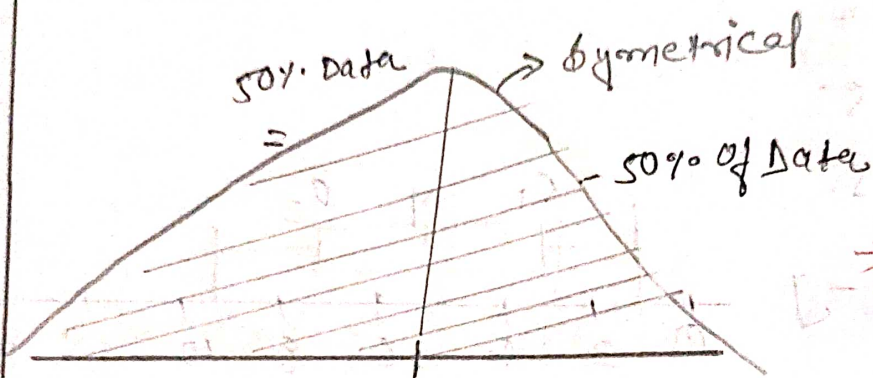 50%. Data
→ Symetrical
=
- 50% Of Data